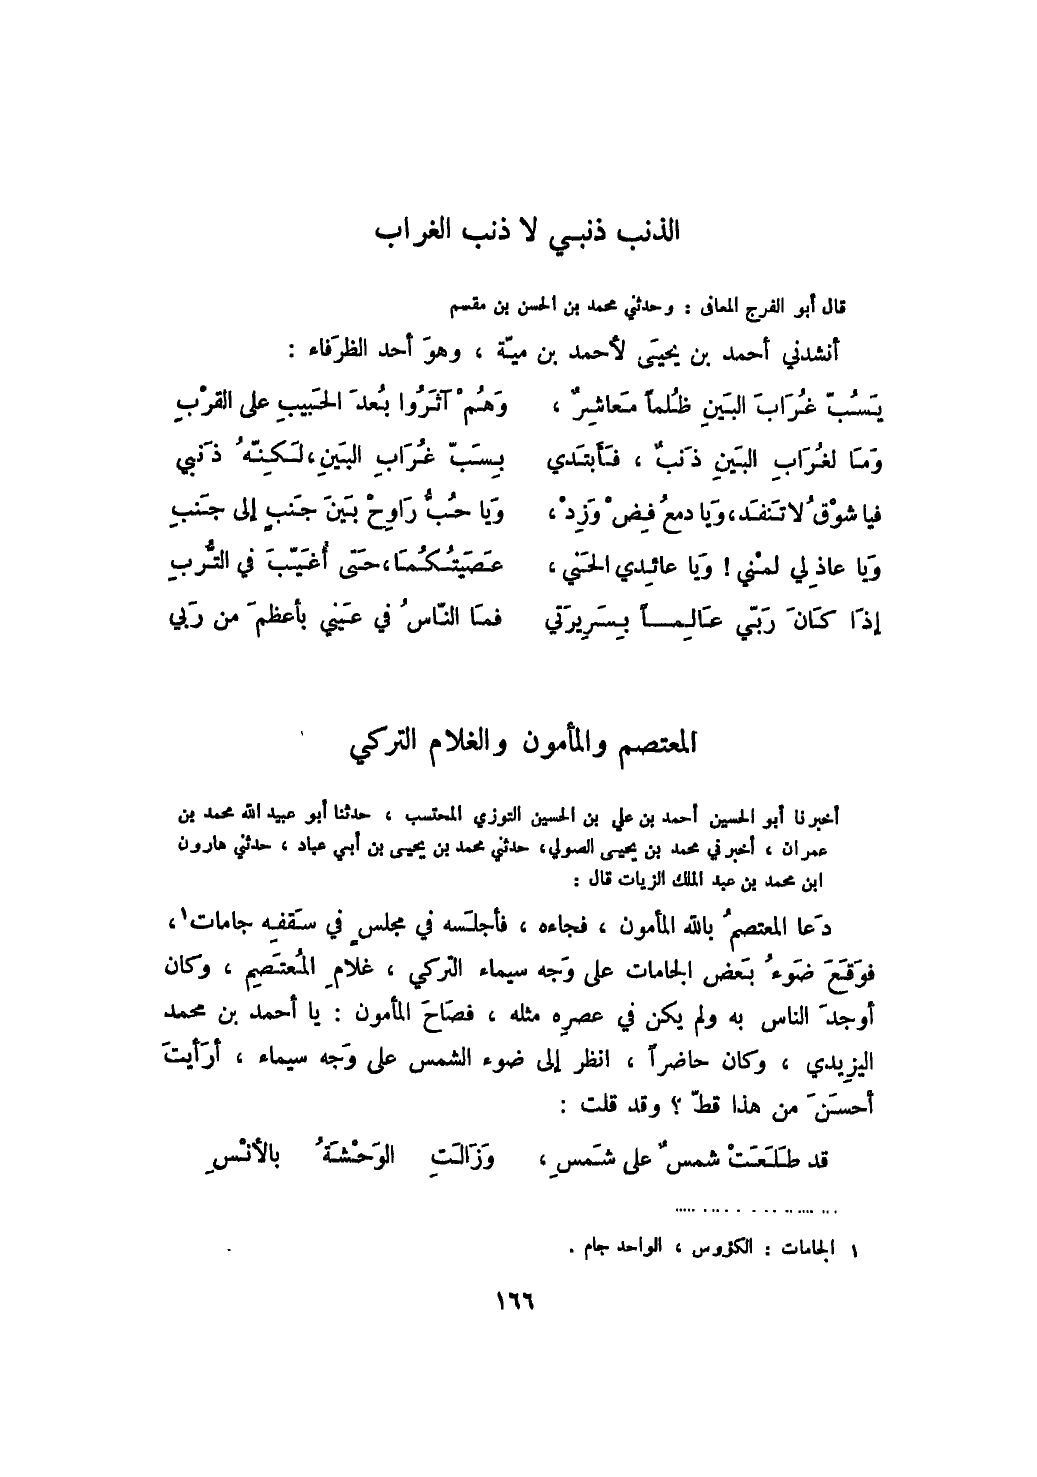 الذنب ذنبي لا ذنب الغراب
قال أبو الفرج المعافى : وحدثني محمد بن الحسن بن مقسم
أنشدني أحمد بن يحيَى لأحمد بن ميّة ، وهوَ أحد الظرَفاء :
يَسُبّ غُرَابَ البَينِ ظُلماً مَعاشِرٌ ، وَهُمْ آثَرُوا بُعدَ الحَبيبِ على القرْبِ
وَمَا لغُرَابِ البَينِ ذَنبٌ ، فَأبتَدي بِسَبّ غُرَابِ البَينِ، لَكِنّهُ ذَنبي
فيا شوْقُ لا تَنفَد، وَيا دمعُ فِضْ وَزِدْ، وَيا حُبُّ رَاوِحْ بَينَ جَنبٍ إلى جَنبِ
وَيا عاذِلي لمْني ! وَيا عائِدي الحَني ، عَصَيتُكُمَا، حَتى أُغَيَّبَ في التُّربِ
إذَا كَانَ رَبّي عَالِمـاً بِسَرِيرَتي فمَا النّاسُ في عَيني بأعظمَ من رَبي
المعتصم والمأمون والغلام التركي
أخبرنا أبو الحسين أحمد بن علي بن الحسين التوزي المحتسب ، حدثنا أبو عبيد الله محمد بن
عمران ، أخبرني محمد بن يحيى الصولي، حدثني محمد بن يحيى بن أبي عباد ، حدثني هارون
ابن محمد بن عبد الملك الزيات قال :
دَعا المعتصمُ بالله المأمون ، فجاءه ، فأجلَسه في مجلسٍ في سَقفِه جامات١ ،
فوَقَعَ ضَوءُ بَعض الجامات على وَجه سيماء التّركي ، غلامِ المُعتَصِم ، وكان
أوجدَ الناس به ولم يكن في عصرِه مثله ، فصَاحَ المأمون : يا أحمد بن محمد
اليزِيدي ، وكان حاضراً ، انظر إلى ضوء الشمس على وَجه سيماء ، أرَأيتَ
أحسَنَ من هذا قطّ ؟ وقد قلت :
قد طَلَعَتْ شمسٌ على شَمسِ ، وَزَالَتِ الوَحْشَةُ بالأنْسِ
١ الجامات : الكؤوس ، الواحد جام .
١٦٦